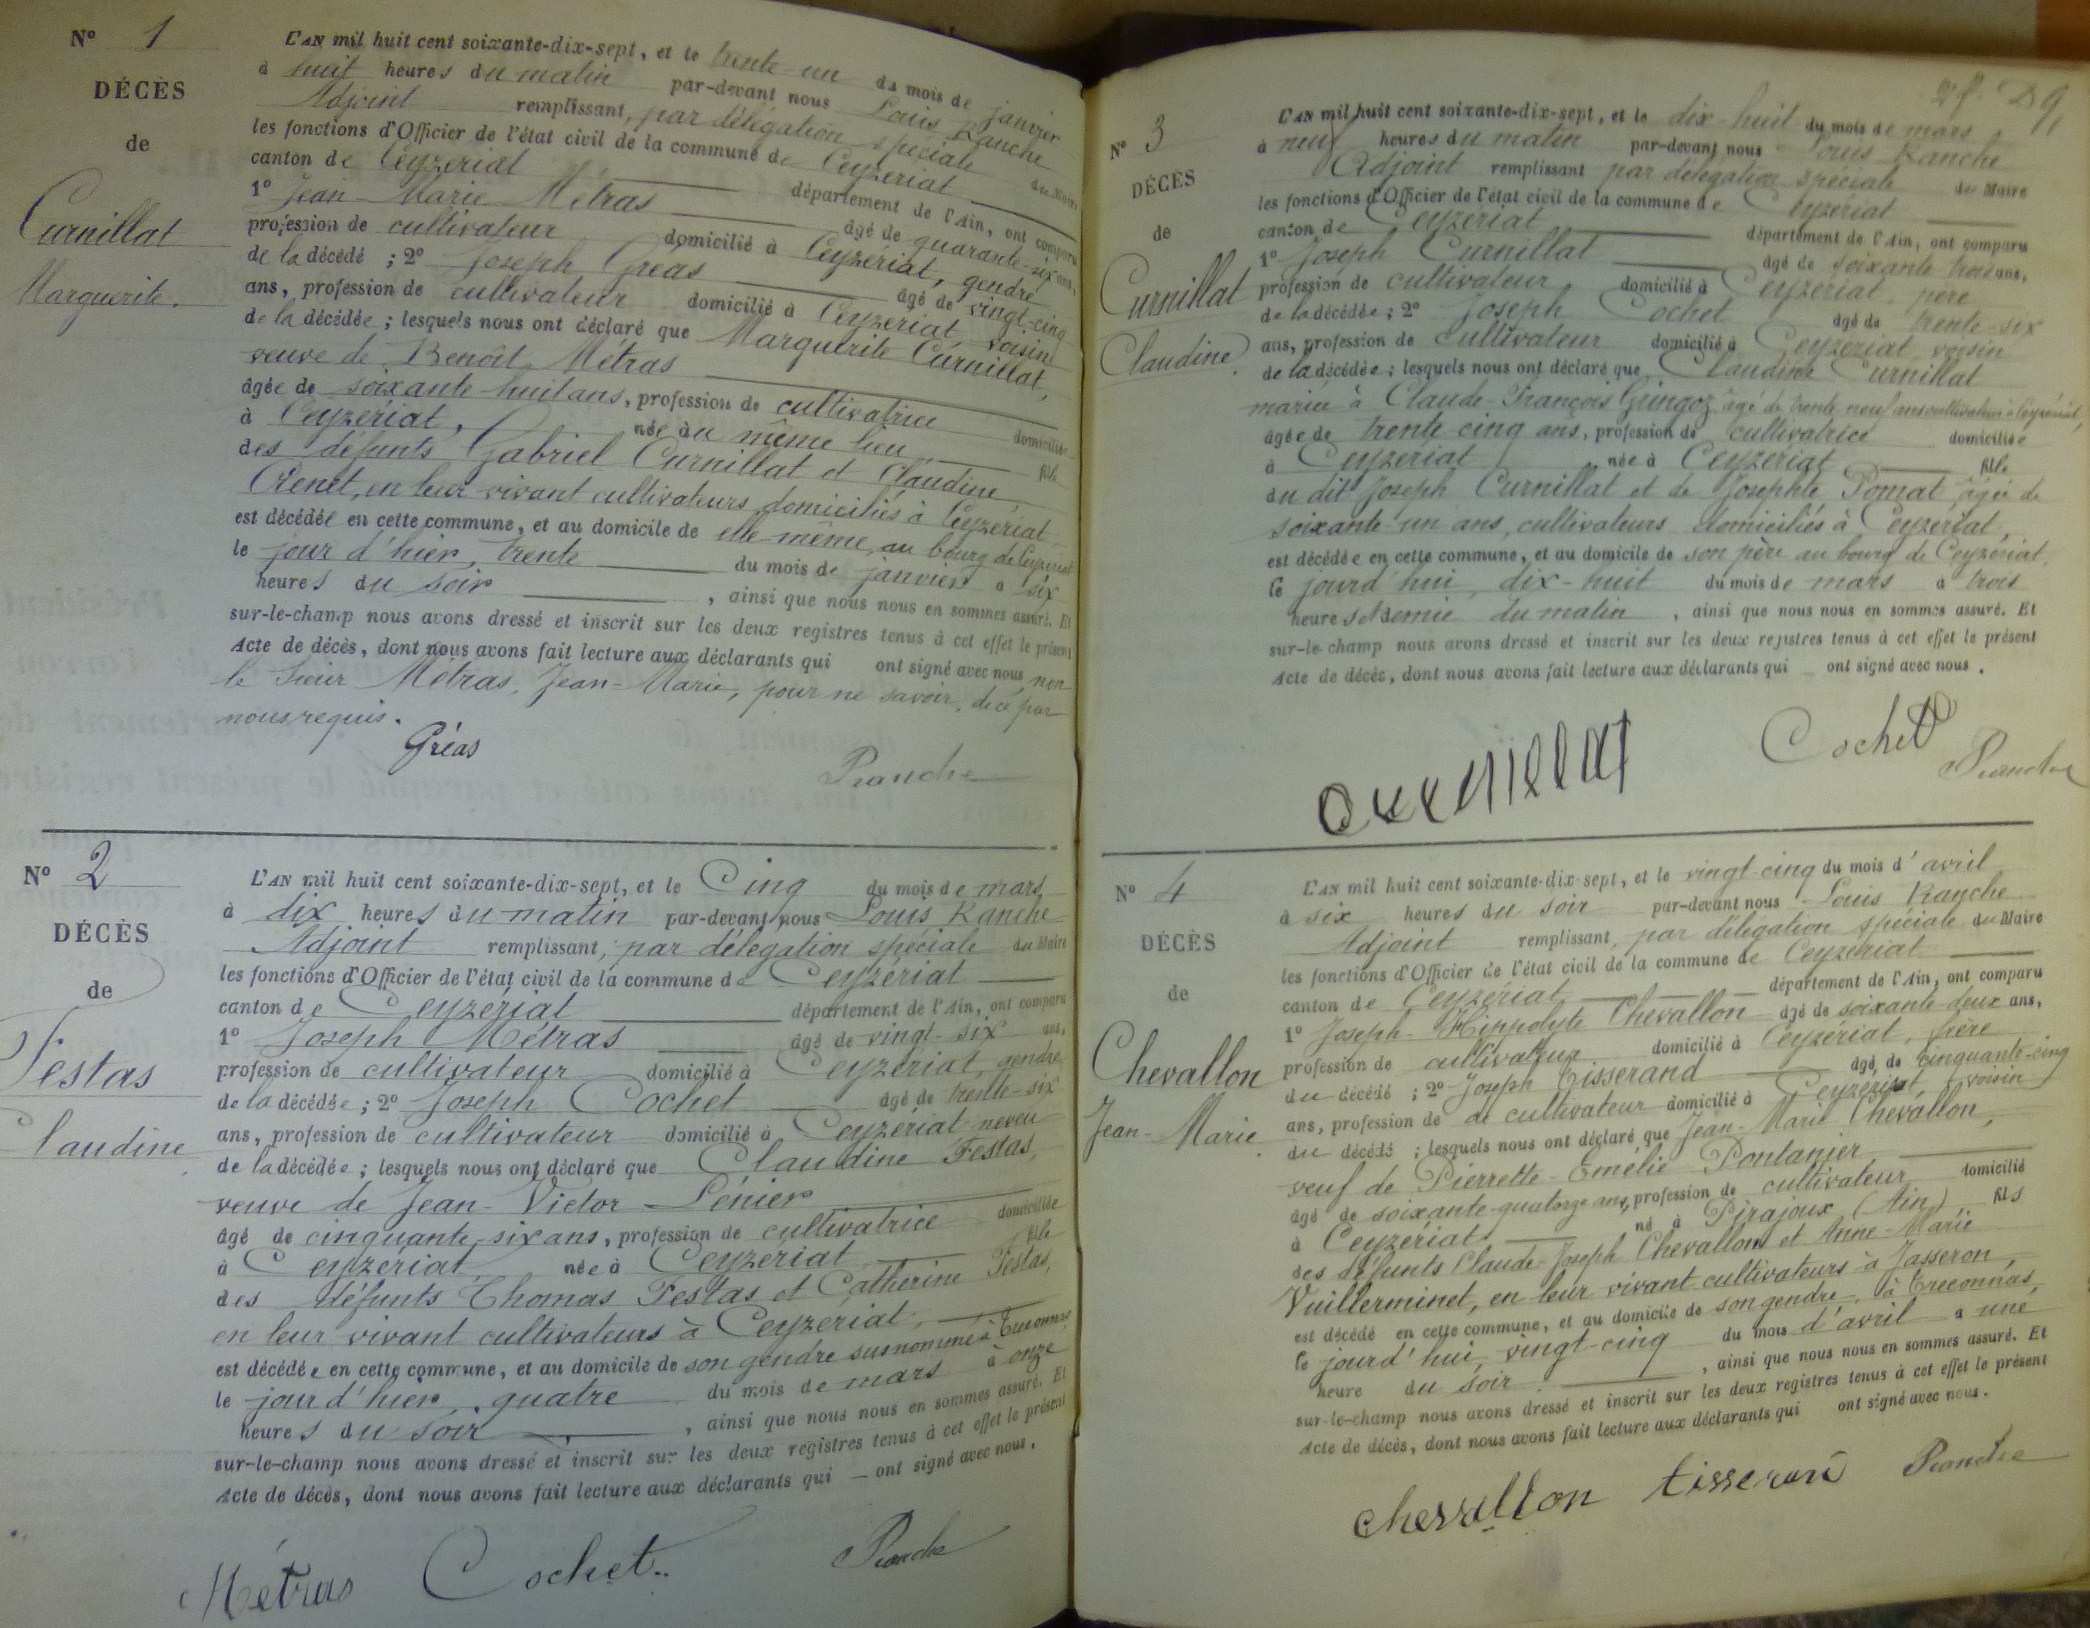 N° 1
DÉCÈS
de
Curnillat
Marguerite.
L'AN mil huit cent soixante-dix-sept, et le trente-un du mois de janvier
à huit heures du matin par-devant nous Louis Ranche
Adjoint remplissant, par délégation spéciale du Maire
les fonctions d'Officier de l'état civil de la commune de Ceyzériat
canton de Ceyzériat département de l'Ain, ont comparu
1° Jean-Marie Métras âgé de quarante-six ans,
profession de cultivateur domicilié à Ceyzériat, gendre
de la décédé ; 2° Joseph Gréas âgé de vingt-cinq
ans, profession de cultivateur domicilié à Ceyzériat voisin
de la décédée ; lesquels nous ont déclaré que Marguerite Curnillat,
veuve de Benoît Métras
âgée de soixante-huit ans, profession de cultivatrice domiciliée
à Ceyzériat, née au même lieu fille
des défunts Gabriel Curnillat et Claudine
en leur vivant cultivateurs domiciliés à Ceyzériat
est décédée en cette commune, et au domicile de elle-même au bourg de Ceyzériat
le jour d'hier, trente du mois de janvier à six
heures du soir , ainsi que nous nous en sommes assuré. Et
sur-le-champ nous avons dressé et inscrit sur les deux registres tenus à cet effet le présent
Acte de décès, dont nous avons fait lecture aux déclarants qui ont signé avec nous non
le Sieur Métras, Jean-Marie, pour ne savoir, de ce par
nous requis.
Gréas
Ranche
N° 2
DÉCÈS
de
Festas
Claudine
L'AN mil huit cent soixante-dix-sept, et le Cinq du mois de mars
à dix heures du matin par-devant nous Louis Ranche
Adjoint remplissant, par délégation spéciale du Maire
les fonctions d'Officier de l'état civil de la commune de Ceyzériat
canton de Ceyzériat département de l'Ain, ont comparu
1° Joseph Métras âgé de vingt-six ans,
profession de cultivateur domicilié à Ceyzériat, gendre
de la décédée ; 2° Joseph Cochet âgé de trente-six
ans, profession de cultivateur domicilié à Ceyzériat neveu
de la décédée ; lesquels nous ont déclaré que Claudine Festas,
veuve de Jean-Victor Lénier
âgé de cinquante-six ans, profession de cultivatrice domiciliée
à Ceyzériat née à Ceyzériat fille
des défunts Thomas Festas et Catherine Festas,
en leur vivant cultivateurs à Ceyzériat,
est décédée en cette commune, et au domicile de son gendre susnommé à Treconnas
le jour d'hier, quatre du mois de mars à onze
heures du soir , ainsi que nous nous en sommes assuré. Et
sur-le-champ nous avons dressé et inscrit sur les deux registres tenus à cet effet le présent
Acte de décès, dont nous avons fait lecture aux déclarants qui ont signé avec nous.
Métras Cochet Ranche
N° 3
DÉCÈS
de
Curnillat
Claudine.
L'AN mil huit cent soixante-dix-sept, et le dix-huit du mois de mars
à neuf heures du matin par-devant nous Louis Ranche
Adjoint remplissant par délégation spéciale du Maire
les fonctions d'Officier de l'état civil de la commune de Ceyzériat
canton de Ceyzériat département de l'Ain, ont comparu
1° Joseph Curnillat âgé de soixante trois ans,
profession de cultivateur domicilié à Ceyzériat, père
de la décédée ; 2° Joseph Cochet âgé de trente-six
ans, profession de cultivateur domicilié à Ceyzériat voisin
de la décédée ; lesquels nous ont déclaré que Claudine Curnillat
mariée à Claude-François Gringoz âgé de trente neuf ans cultivateur à Ceyzériat,
âgée de trente cinq ans, profession de cultivatrice domiciliée
à Ceyzériat, née à Ceyzériat fille
du dit Joseph Curnillat et de Josephte Pomat âgée de
soixante-un ans, cultivateurs domiciliés à Ceyzériat,
est décédée en cette commune, et au domicile de son père au bourg de Ceyzériat.
le jourd'hui, dix-huit du mois de mars à trois
heures et demie du matin , ainsi que nous nous en sommes assuré. Et
sur-le-champ nous avons dressé et inscrit sur les deux registres tenus à cet effet le présent
Acte de décès, dont nous avons fait lecture aux déclarants qui ont signé avec nous.
Cochet
Ranche
N° 4
DÉCÈS
de
Chevallon
Jean-Marie.
L'AN mil huit cent soixante-dix-sept, et le vingt-cinq du mois d'avril
à six heures du soir par-devant nous Louis Ranche
Adjoint remplissant, par délégation spéciale du Maire
les fonctions d'Officier de l'état civil de la commune de Ceyzériat
canton de Ceyzériat département de l'Ain, ont comparu
1° Joseph-Hippolyte Chevallon âgé de soixante-deux ans,
profession de cultivateur domicilié à Ceyzériat, frère
du décédé ; 2° Joseph Tisserand âgé de cinquante-cinq
ans, profession de de cultivateur domicilié à Ceyzériat, voisin
du décédé ; lesquels nous ont déclaré que Jean-Marie Chevallon,
veuf de Pierrette-Emélie Pontanier
âgé de soixante-quatorze ans, profession de cultivateur domicilié
à Ceyzériat né à Pirajoux (Ain) fils
des défunts Claude-Joseph Chevallon et Anne-Marie
Vuillerminet, en leur vivant cultivateurs à Jasseron,
est décédé en cette commune, et au domicile de son gendre, à Treconnas,
le jourd'hui, vingt-cinq du mois d'avril à une
heure du soir , ainsi que nous nous en sommes assuré. Et
sur-le-champ nous avons dressé et inscrit sur les deux registres tenus à cet effet le présent
Acte de décès, dont nous avons fait lecture aux déclarants qui ont signé avec nous.
chevallon tisserand Ranche